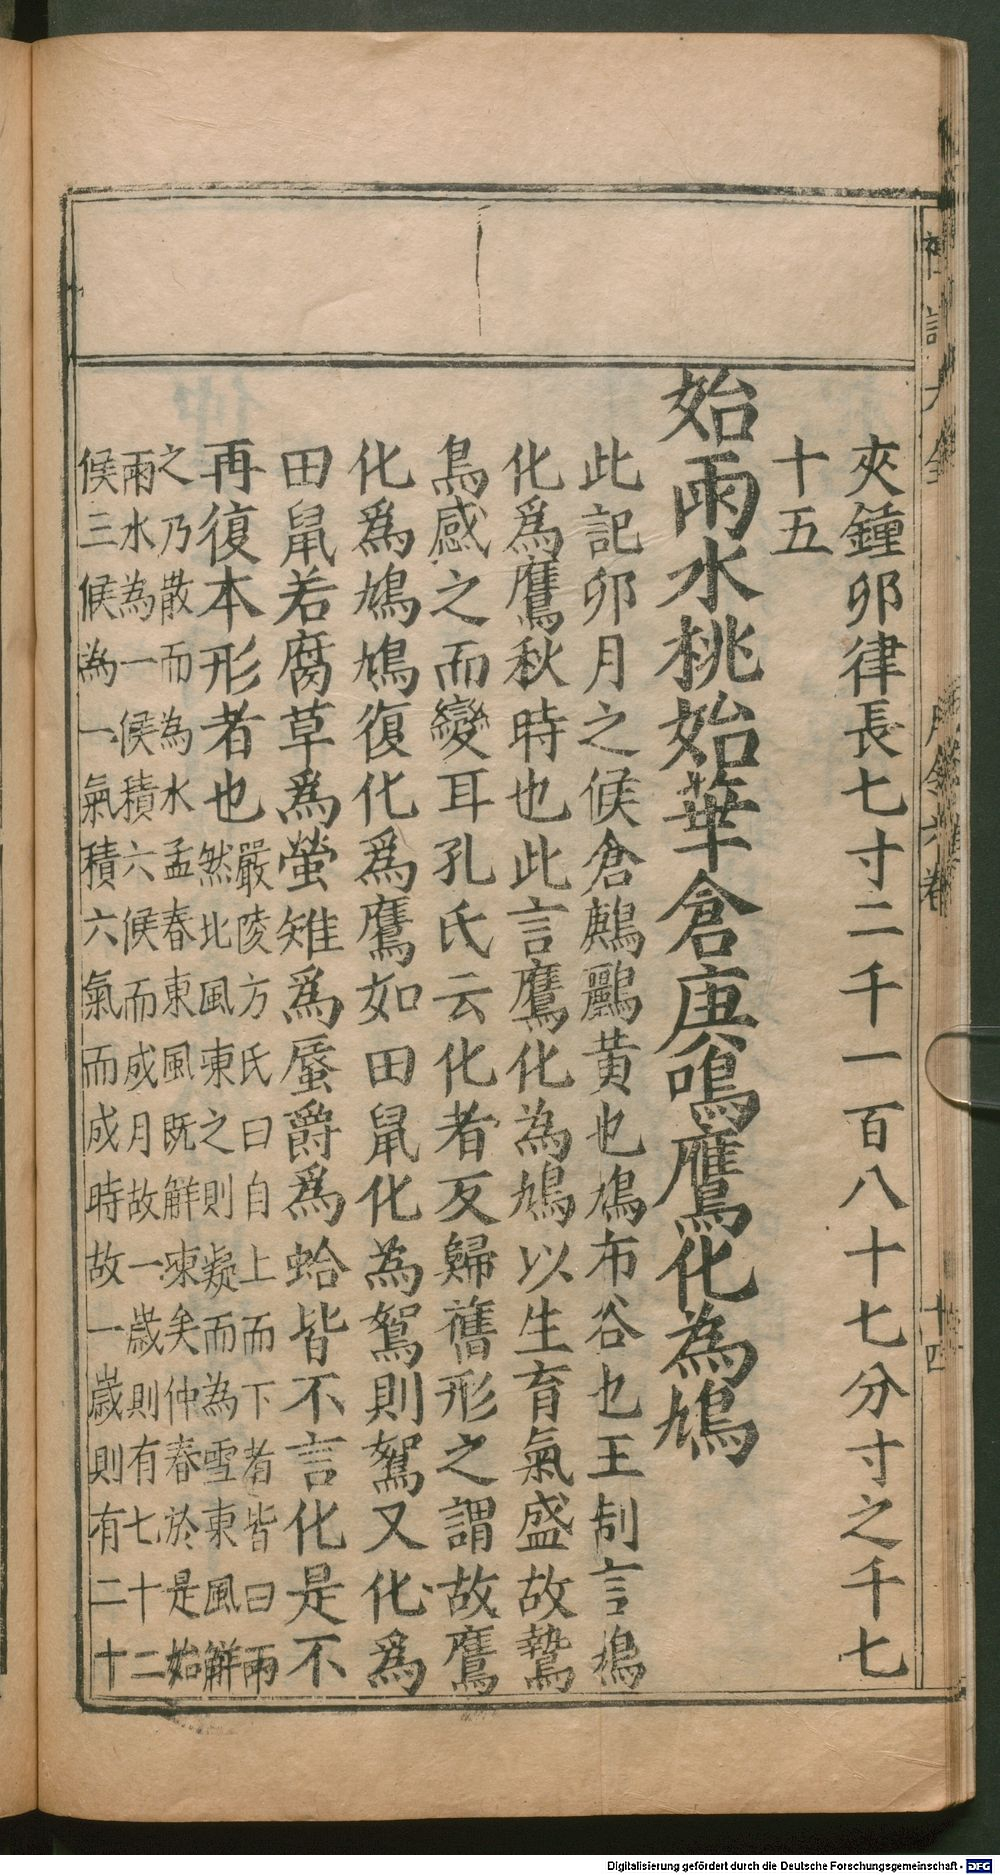 夾鍾卯律長七寸二千一百八十七分寸之千七
十五
始雨水桃始華倉庚鳴鷹化為鳩
此記卯月之候倉鶊鸝黃也鳩布谷也王制言鳩
化爲鷹秋時也此言鷹化為鳩以生育氣盛故鷙
鳥感之而變耳孔氏云化者反歸舊形之謂故鷹
化爲鳩鳩復化爲鷹如田鼠化為鴽則鴽又化爲
田鼠若腐草爲螢雉爲蜃爵爲蛤皆不言化是不
再復本形者也
嚴陵方氏曰自上而下者皆曰雨
然北風東之則凝而為雪東風解
之乃散而為水孟春東風既解凍矣仲春於是始
雨水為一候積六候而成月故一歲則有七十二
候三候為一氣積六氣而成時故一歲則有二十
月令六卷
十四
Digitalisierung gefördert durch die Deutsche Forschungsgemeinschaft - DFG